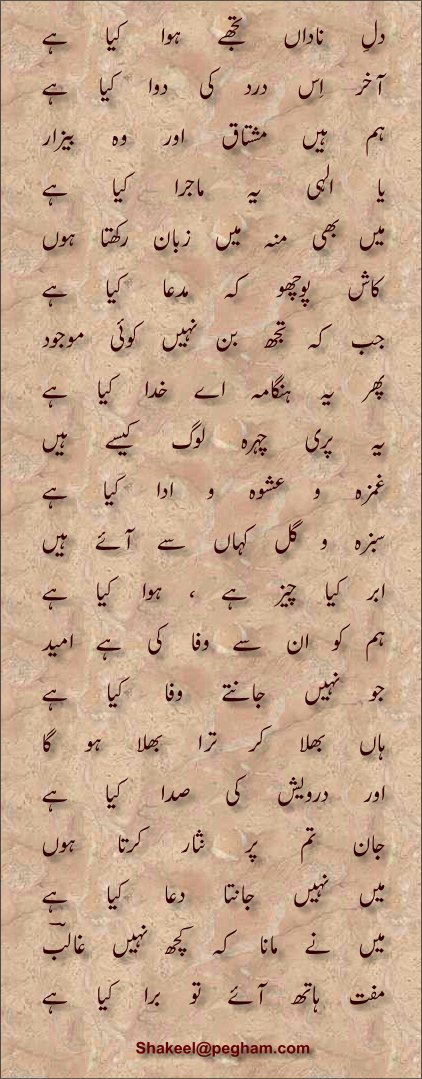 دلِ ناداں تجھے ہوا کیا ہے
آخر اِس درد کی دوا کیا ہے
ہم ہیں مشتاق اور وہ بیزار
یا الٰہی یہ ماجرا کیا ہے
میں بھی منہ میں زبان رکھتا ہوں
کاش پوچھو کہ مدعا کیا ہے
جب کہ تجھ بن نہیں کوئی موجود
پھر یہ ہنگامہ اے خدا کیا ہے
یہ پری چہرہ لوگ کیسے ہیں
غمزہ و عشوہ و ادا کیا ہے
سبزہ و گل کہاں سے آئے ہیں
ابر کیا چیز ہے ، ہوا کیا ہے
ہم کو ان سے وفا کی ہے امید
جو نہیں جانتے وفا کیا ہے
ہاں بھلا کر ترا بھلا ہو گا
اور درویش کی صدا کیا ہے
جان تم پر نثار کرتا ہوں
میں نہیں جانتا دعا کیا ہے
میں نے مانا کہ کچھ نہیں غالبؔ
مفت ہاتھ آئے تو برا کیا ہے
Shakeel@pegham.com